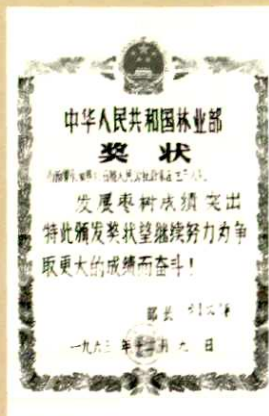 中华人民共和国林业部
奖状
发展枣树成绩突出
特此颁发奖状望继续努力为争
取更大的成绩而奋斗!
部长
一九六三年十二月九日